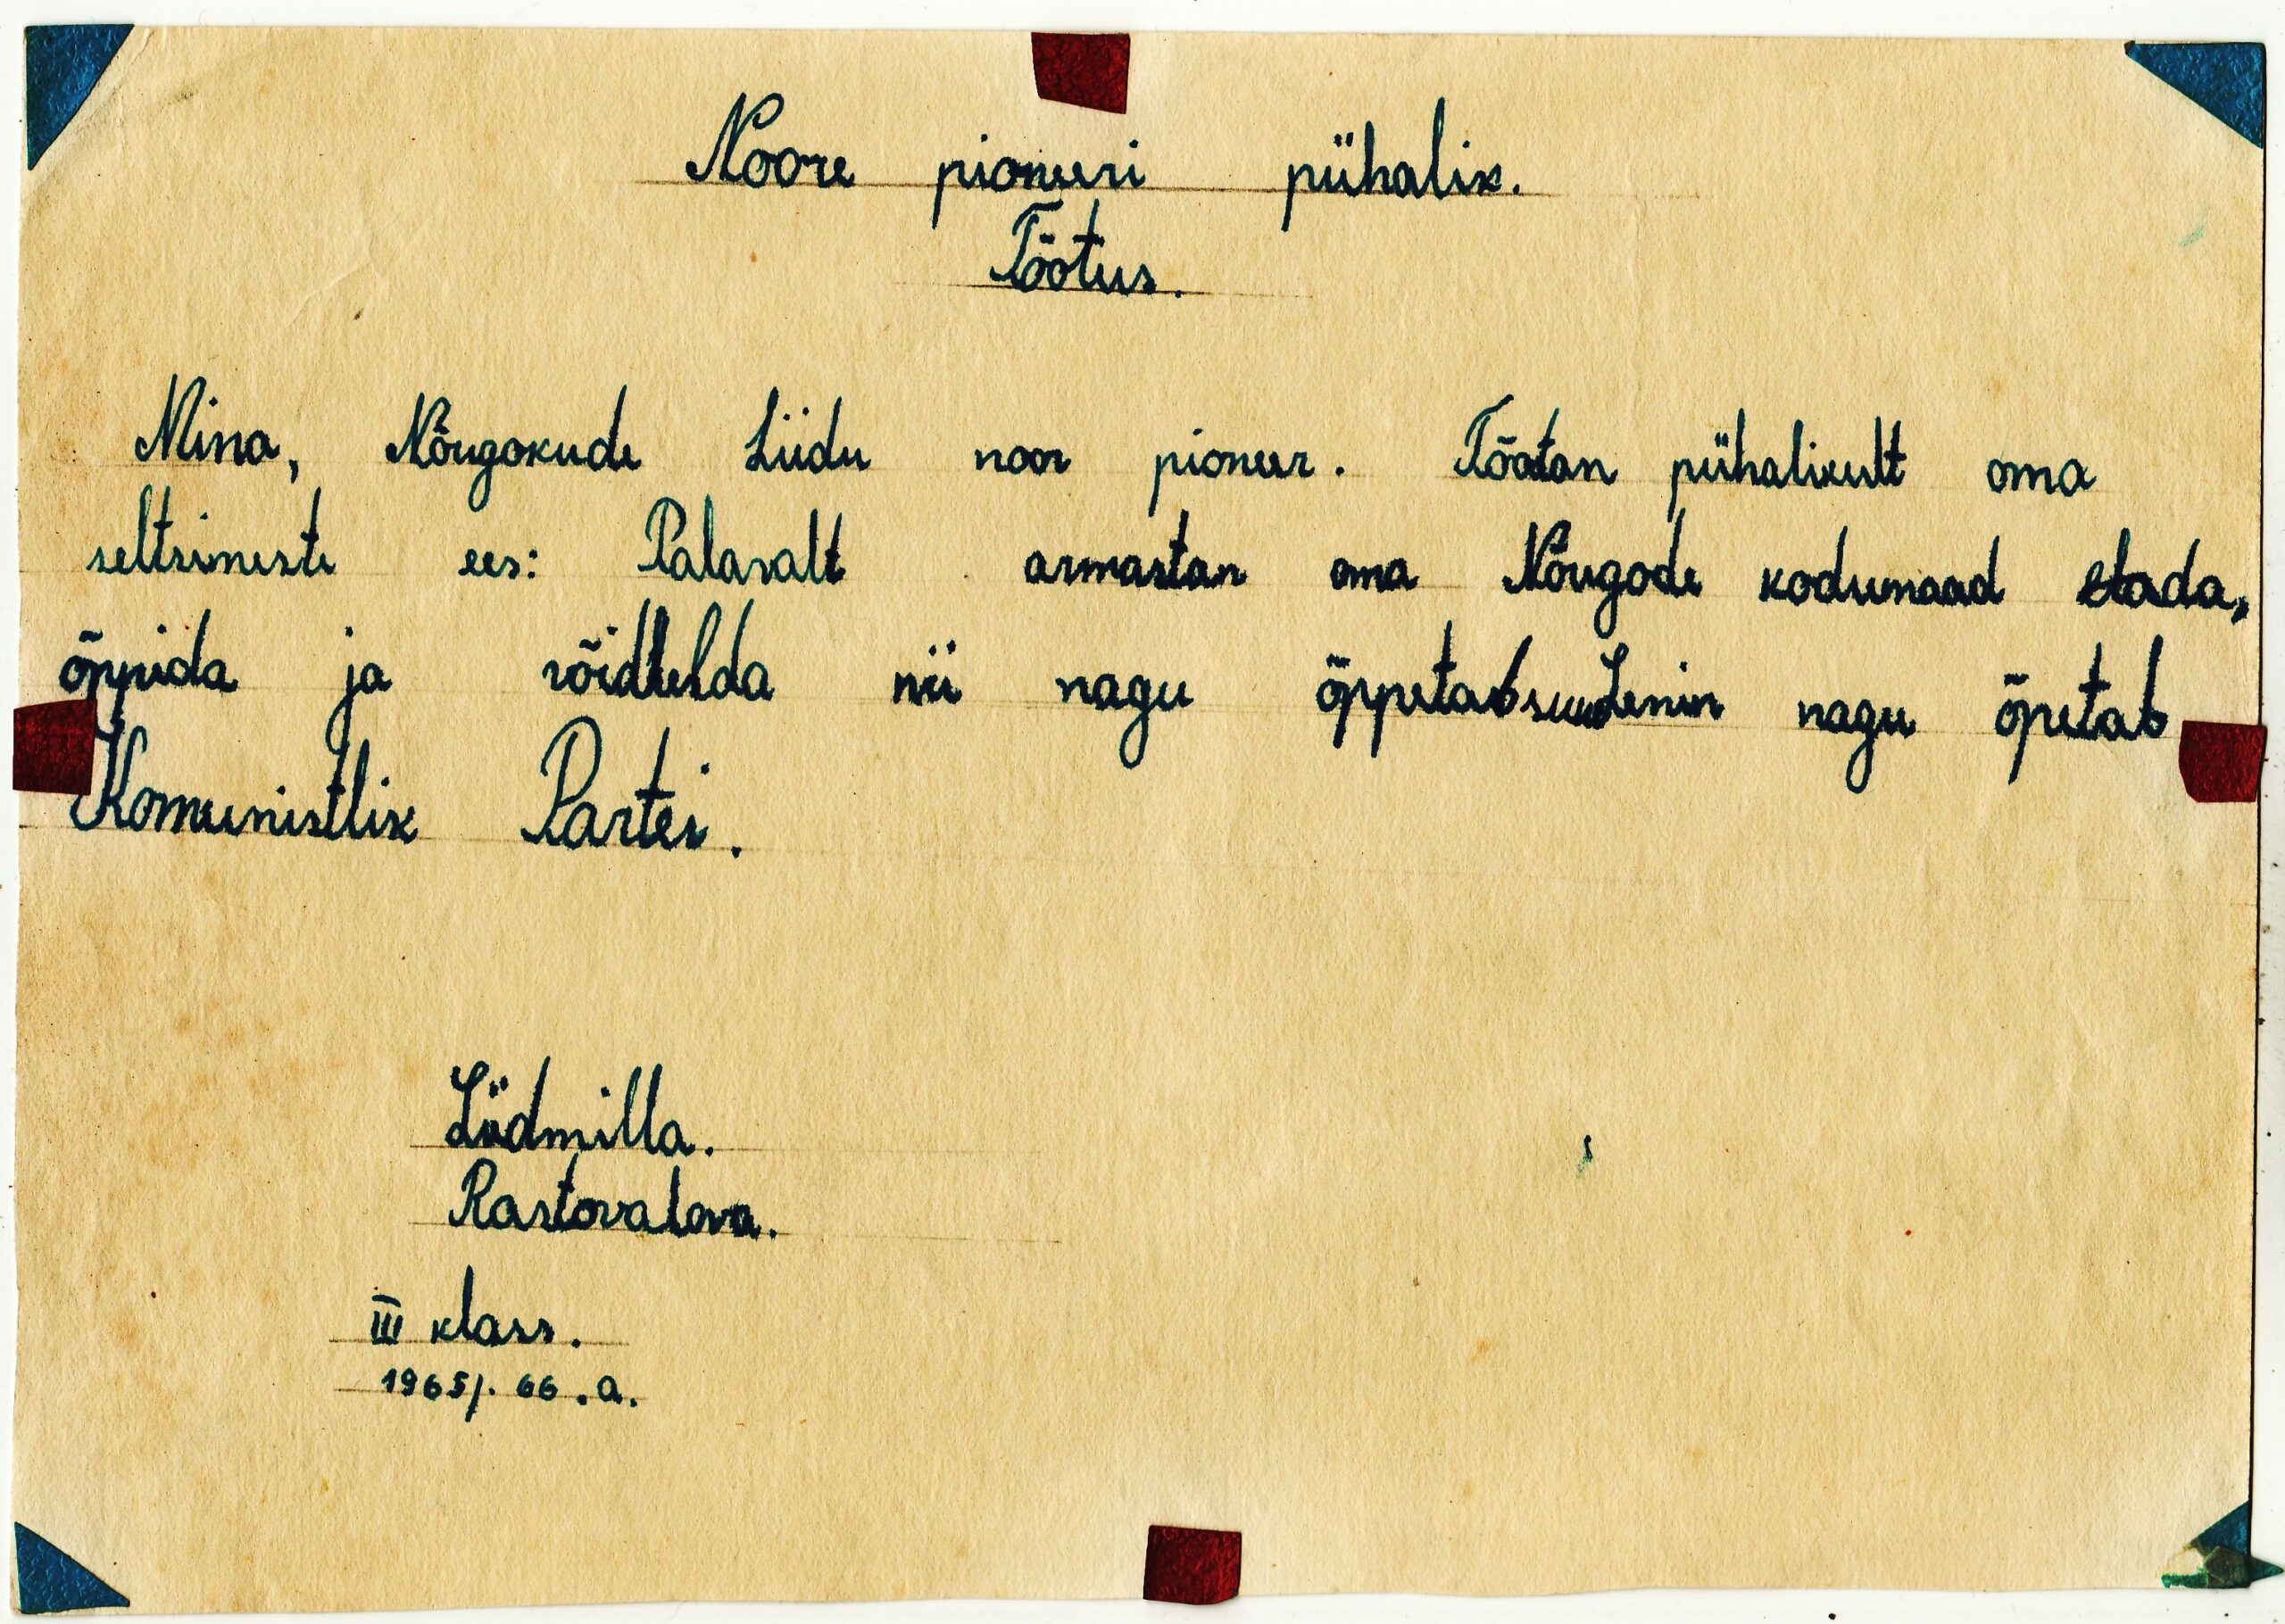 Noore pioneeri pühalik.
Tõotus.
Mina, Nõugokude Liidu noor pioneer. Tõotan pühalikult oma
seltsimeste ees: Palavalt armastan oma Nõugode kodumaad elada,
õppida ja võidlelda nii nagu õppetab suur Lenin nagu õpetab
Komunistlik Partei.
Lüdmilla.
Rastovalova.
III klass.
1965/. 66 .a.